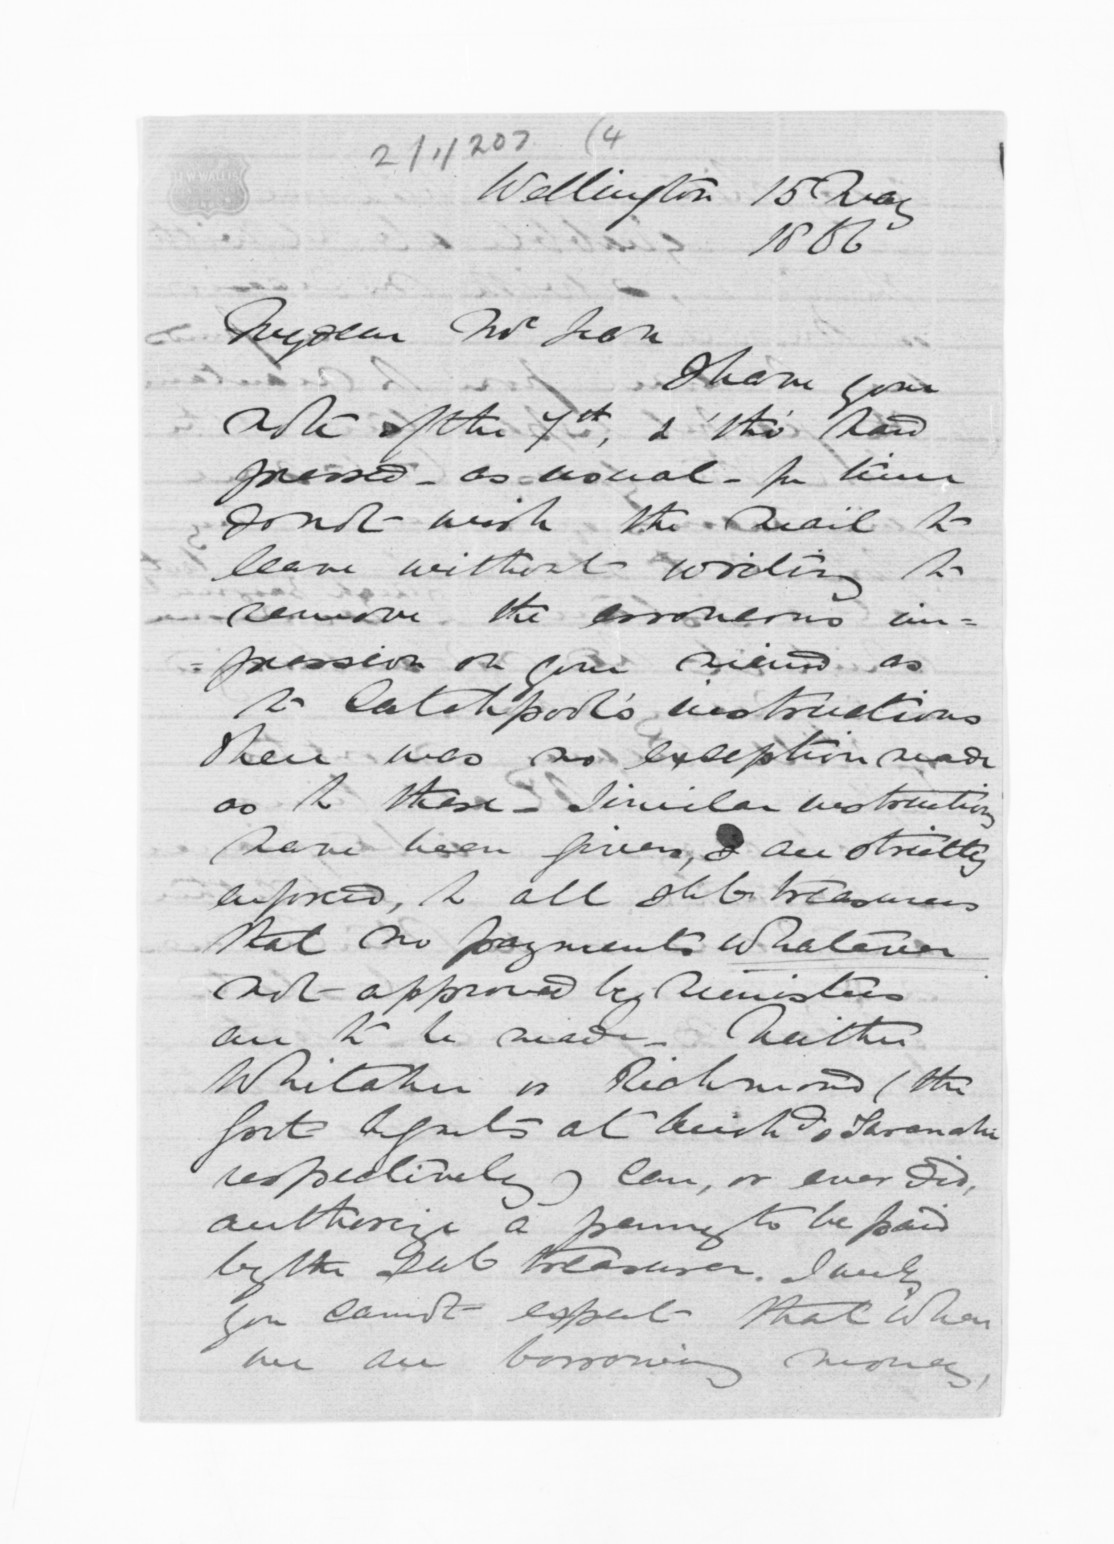 2/1/207 (4
Wellington 15 May
1866
My dear McLean
I have your
note of the 7th, & 'tho' hard
pressed - as usual - for time
do not wish the mail to
leave without writing to
remove the erroneous im=
=pression on your mind as
to Catchpool's instructions
there was no exception made
as to these - Similar instructions
have been given, & are strictly
enforced, to all sub treasurers
that no payments whatever
not approved by Ministers
are to be made - Neither
Whitaker or Richmond (the
Govt Agents at Auckd & Taranaki
respectively) can, or ever did,
authorize a penny to be paid
by the Sub treasurer. Surely
you cannot expect that when
we are borrowing money,